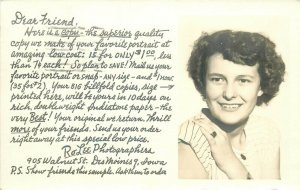 Dear Friend,
Here is a copy - the superior quality
copy we make of your favorite portrait at
amazing low cost: 15 for ONLY $1.00
less than 7¢ each! So plan to SAVE! Mail us your
favorite portrait or snap - ANY size - and $1 now.
(35 for $2) Your BIG billfold copies, size
printed here, will be yours in 10 days on
rich, double weight Studiotone paper - the
very Best! Your original we return. Thrill
more of your friends. Send us your order
right away at this special low price.
RoLee Photographers
905 Walnut St. Des Moines 9, Iowa
P.S. Show friends this sample. Ask them to order